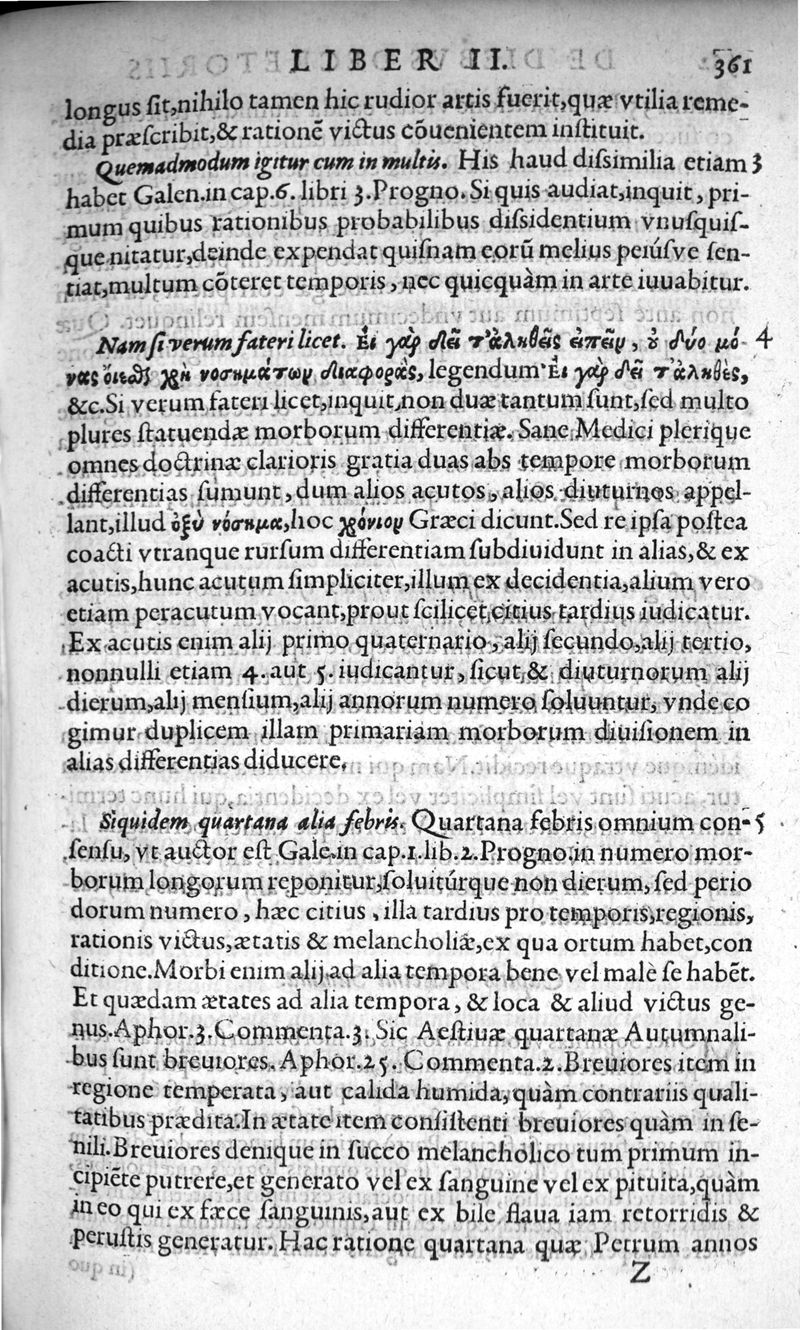 LIBER II. 361
longus ſit,nihilo tamen hic rudior artis fuerit,quæ vtilia reme-
dia præſcribit,& rationē victus cōuenientem inſtituit.
Quemadmodum igitur cum in multis. His haud diſsimilia etiam 3
habet Galen.in cap.6. libri 3.Progno. Si quis audiat,inquit, pri-
mum quibus rationibus probabilibus diſsidentium vnuſquiſ-
que nitatur,deinde expendat quiſnam eorū melius peiúſve ſen-
tiat,multum cōteret temporis, nec quicquàm in arte iuuabitur.
Nam ſi verum fateri licet. Εἰ γὰρ δεῖ τ'ἀληθὲς εἰπεῖν, ὀ δύο μό- 4
νας οἴεσθαι χρὴ νοσημάτων διαφορὰς, legendum Εἰ γὰρ δεῖ τ'ἀληθὲς,
&c.Si verum fateri licet,inquit,non duæ tantum ſunt,ſed multo
plures ſtatuendæ morborum differentiæ. Sane Medici plerique
omnes doctrinæ clarioris gratia duas abs tempore morborum
differentias ſumunt, dum alios acutos, alios diuturnos appel-
lant,illud ὀξὺ νόσημα,hoc χρόνιον Græci dicunt.Sed re ipſa poſtea
coacti vtranque rurſum differentiam ſubdiuidunt in alias,& ex
acutis,hunc acutum ſimpliciter,illum ex decidentia,alium vero
etiam peracutum vocant,prout ſcilicet citius tardius iudicatur.
Ex acutis enim alij primo quaternario, alij ſecundo,alij tertio,
nonnulli etiam 4. aut 5. iudicantur, ſicut & diuturnorum alij
dierum,alij menſium,alij annorum numero ſoluuntur, vnde co
gimur duplicem illam primariam morborum diuiſionem in
alias differentias diducere.
Siquidem quartana alia febris. Quartana febris omnium con- 5
ſenſu, vt auctor eſt Gale.in cap.1.lib.2.Progno.in numero mor-
borum longorum reponitur,ſoluitúrque non dierum, ſed perio
dorum numero, hæc citius, illa tardius pro temporis,regionis,
rationis victus,ætatis & melancholiæ,ex qua ortum habet,con
ditione.Morbi enim alij ad alia tempora bene vel malè ſe habēt.
Et quædam ætates ad alia tempora, & loca & aliud victus ge-
nus.Aphor.3.Commenta.3. Sic Aeſtiuæ quartanæ Autumnali-
bus ſunt breuiores. Aphor.25. Commenta.2.Breuiores item in
regione temperata, aut calida humida, quàm contrariis quali-
tatibus prædita.In ætate item conſiſtenti breuiores quàm in ſe-
nili.Breuiores denique in ſucco melancholico tum primum in-
cipiēte putrere,et generato vel ex ſanguine vel ex pituita,quàm
in eo qui ex fæce ſanguinis,aut ex bile flaua iam retorridis &
peruſtis generatur. Hac ratione quartana quæ Petrum annos
Z